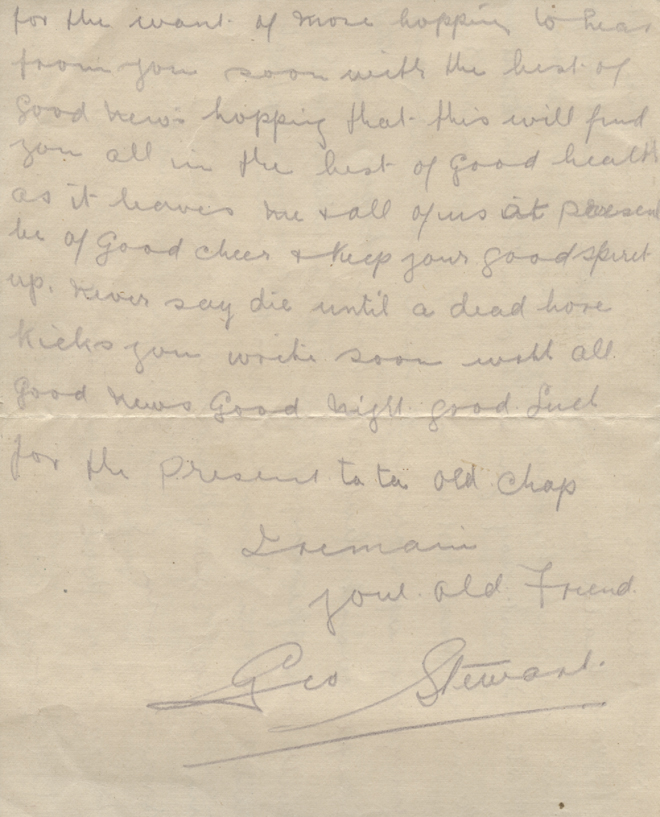 for the want of more hopping to hear
from you soon with the best of
Good News hopping that this will find
you all in the best of Good health
as it leaves me & all of us at present
be of Good cheer & Keep your good spirit
up. Never say die until a dead hore
Kicks you write soon with all
Good News Good Night good Luck
for the Present ta ta old Chap
I remain
your old Friend.
Geo Stewart.